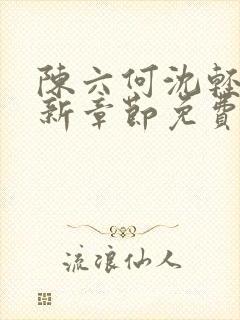 陳六何沈輕
新章節免費
流浪仙人